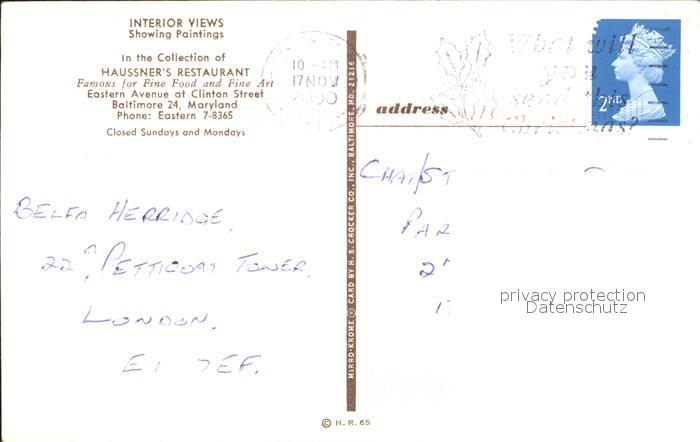 INTERIOR VIEWS
Showing Paintings
In the Collection of
HAUSSNER'S RESTAURANT
Famous for Fine Food and Fine Art
Eastern Avenue at Clinton Street
Baltimore 24, Maryland
Phone: Eastern 7-8365
Closed Sundays and Mondays
10 - AM
17 NOV
2000
What will
you
send this
Christmas?
2ND
address
BELFA HERRIDGE,
22A, PETTICOAT TOWER,
LONDON,
E1 7EF.
PAR
2
privacy protection
Datenschutz
MIRRO-KROME © CARD BY H. S. CROCKER CO., INC., BALTIMORE, MD. 21216
© H. R. 65